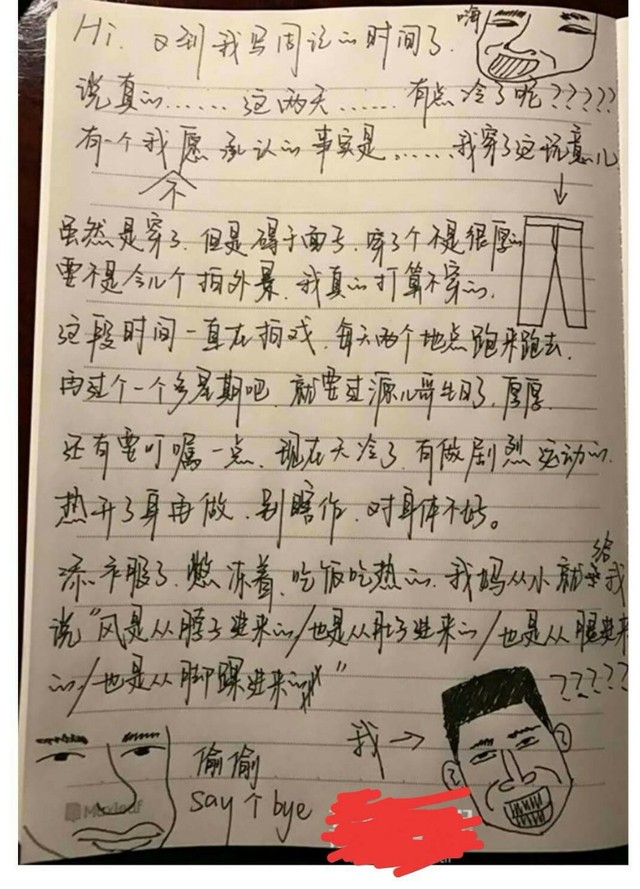 嗨
Hi. 又到我写周记的时间了.
说真的...... 这两天...... 有点冷了呢?????
有一个我不愿承认的事实是...... 我穿了这玩意儿
虽然是穿了.但是碍于面子.穿了个不是很厚的
要不是今儿个拍外景.我真的打算不穿的.
这段时间一直在拍戏.每天两个地点跑来跑去.
再过个一个多星期吧.就要过源儿哥生日了.厚厚.
还有要叮嘱一点.现在天冷了.有做剧烈运动的.
热开了身再做.别瞎作.对身体不好。
添衣服了.憋冻着.吃饭吃热的.我妈从小就给我
说“风是从脖子进来的/也是从肚子进来的/也是从腿进来
的/也是从脚踝进来的”
?????
我→
偷偷
say个bye
Maxleaf